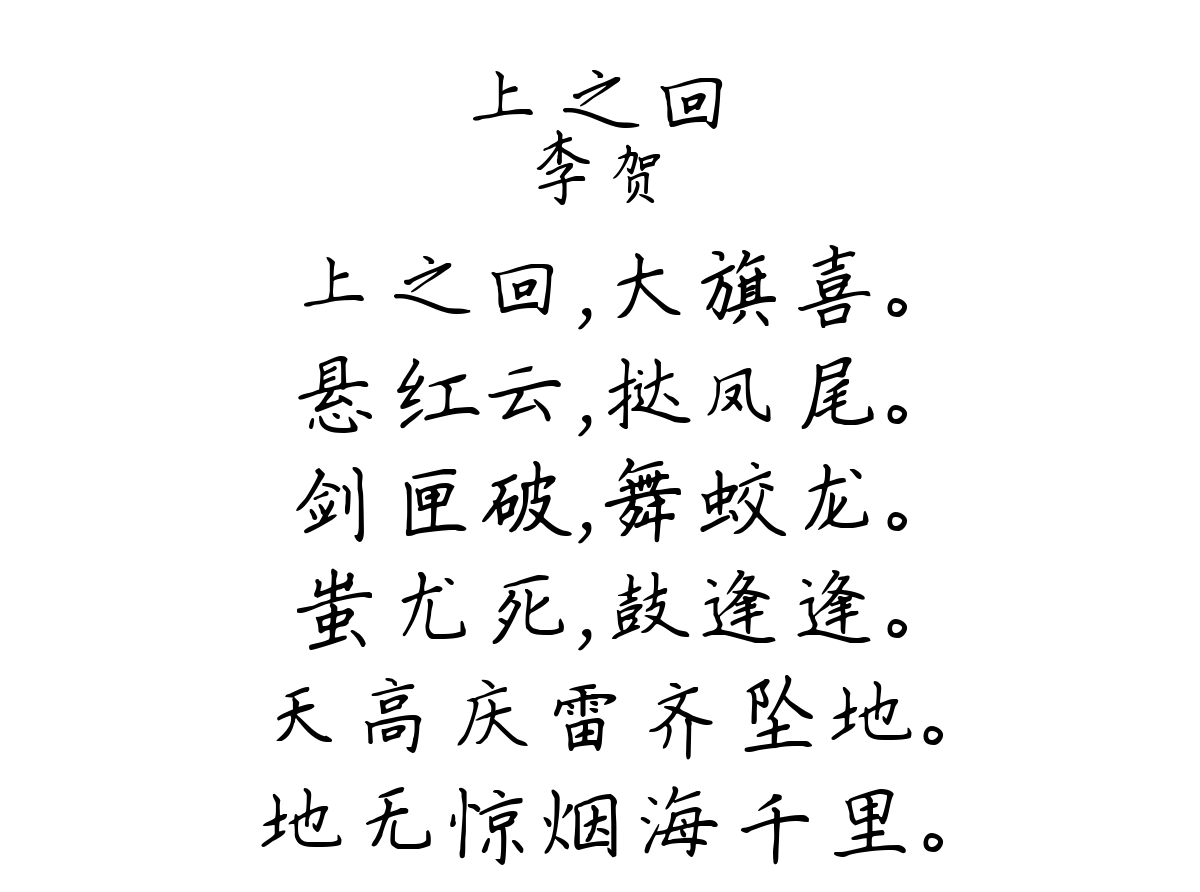 上之回
李贺
上之回,大旗喜。
悬红云,挞凤尾。
剑匣破,舞蛟龙。
蚩尤死,鼓逢逢。
天高庆雷齐坠地。
地无惊烟海千里。